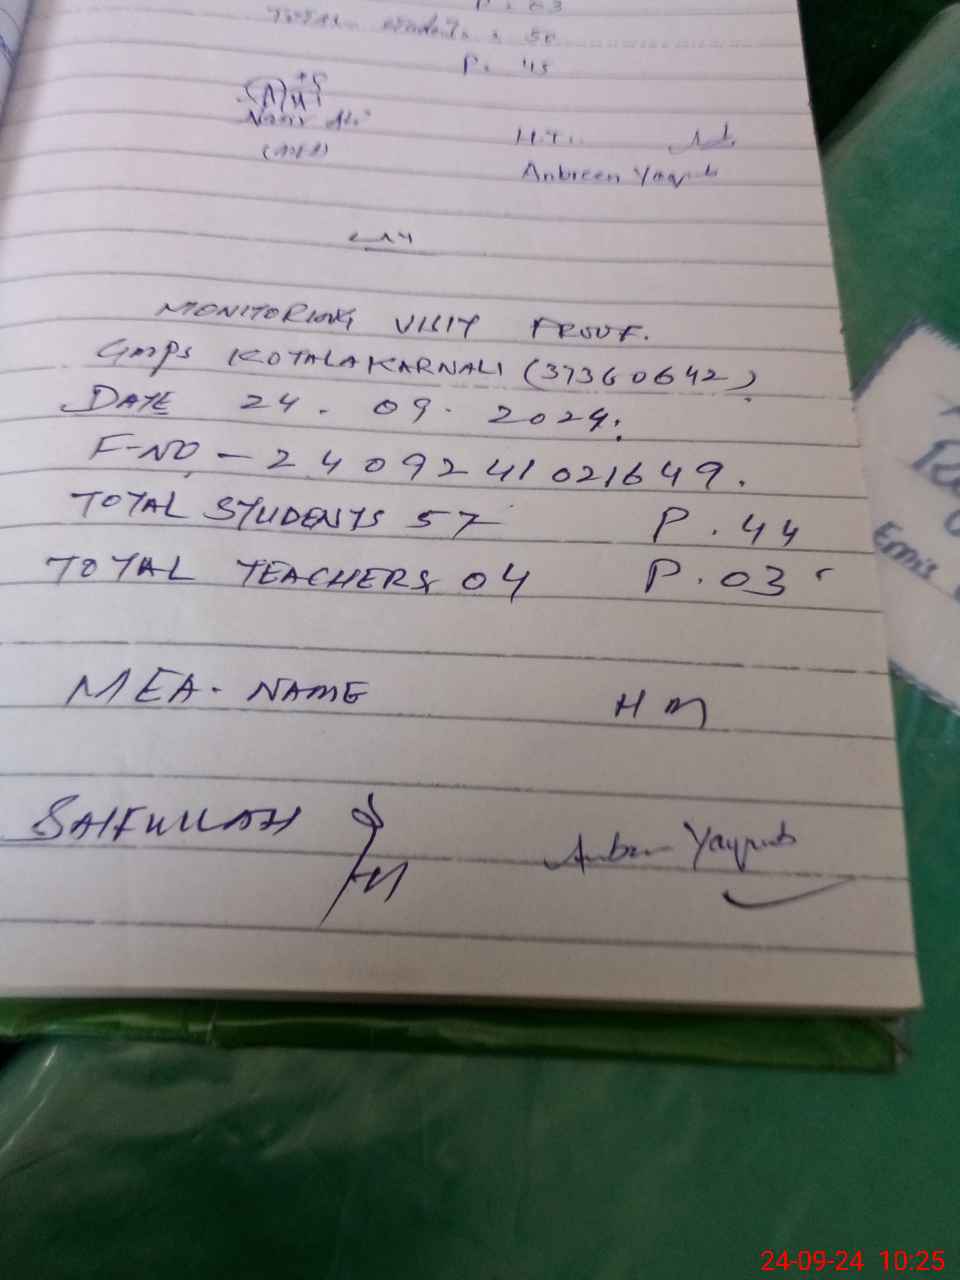 P. 03
Total students : 50
P. 45
Nasir Ali
H.T.
Anbreen Yaqub
MONITORING VISIT PROOF.
GMPS KOTALAKARNALI (37360642)
DATE 24. 09. 2024.
F-NO - 2409241021649.
TOTAL STUDENTS 57 P. 44
TOTAL TEACHERS 04 P. 03
MEA. NAME HM
SAIFULLAH
Anbreen Yaqub
Emis
24-09-24 10:25